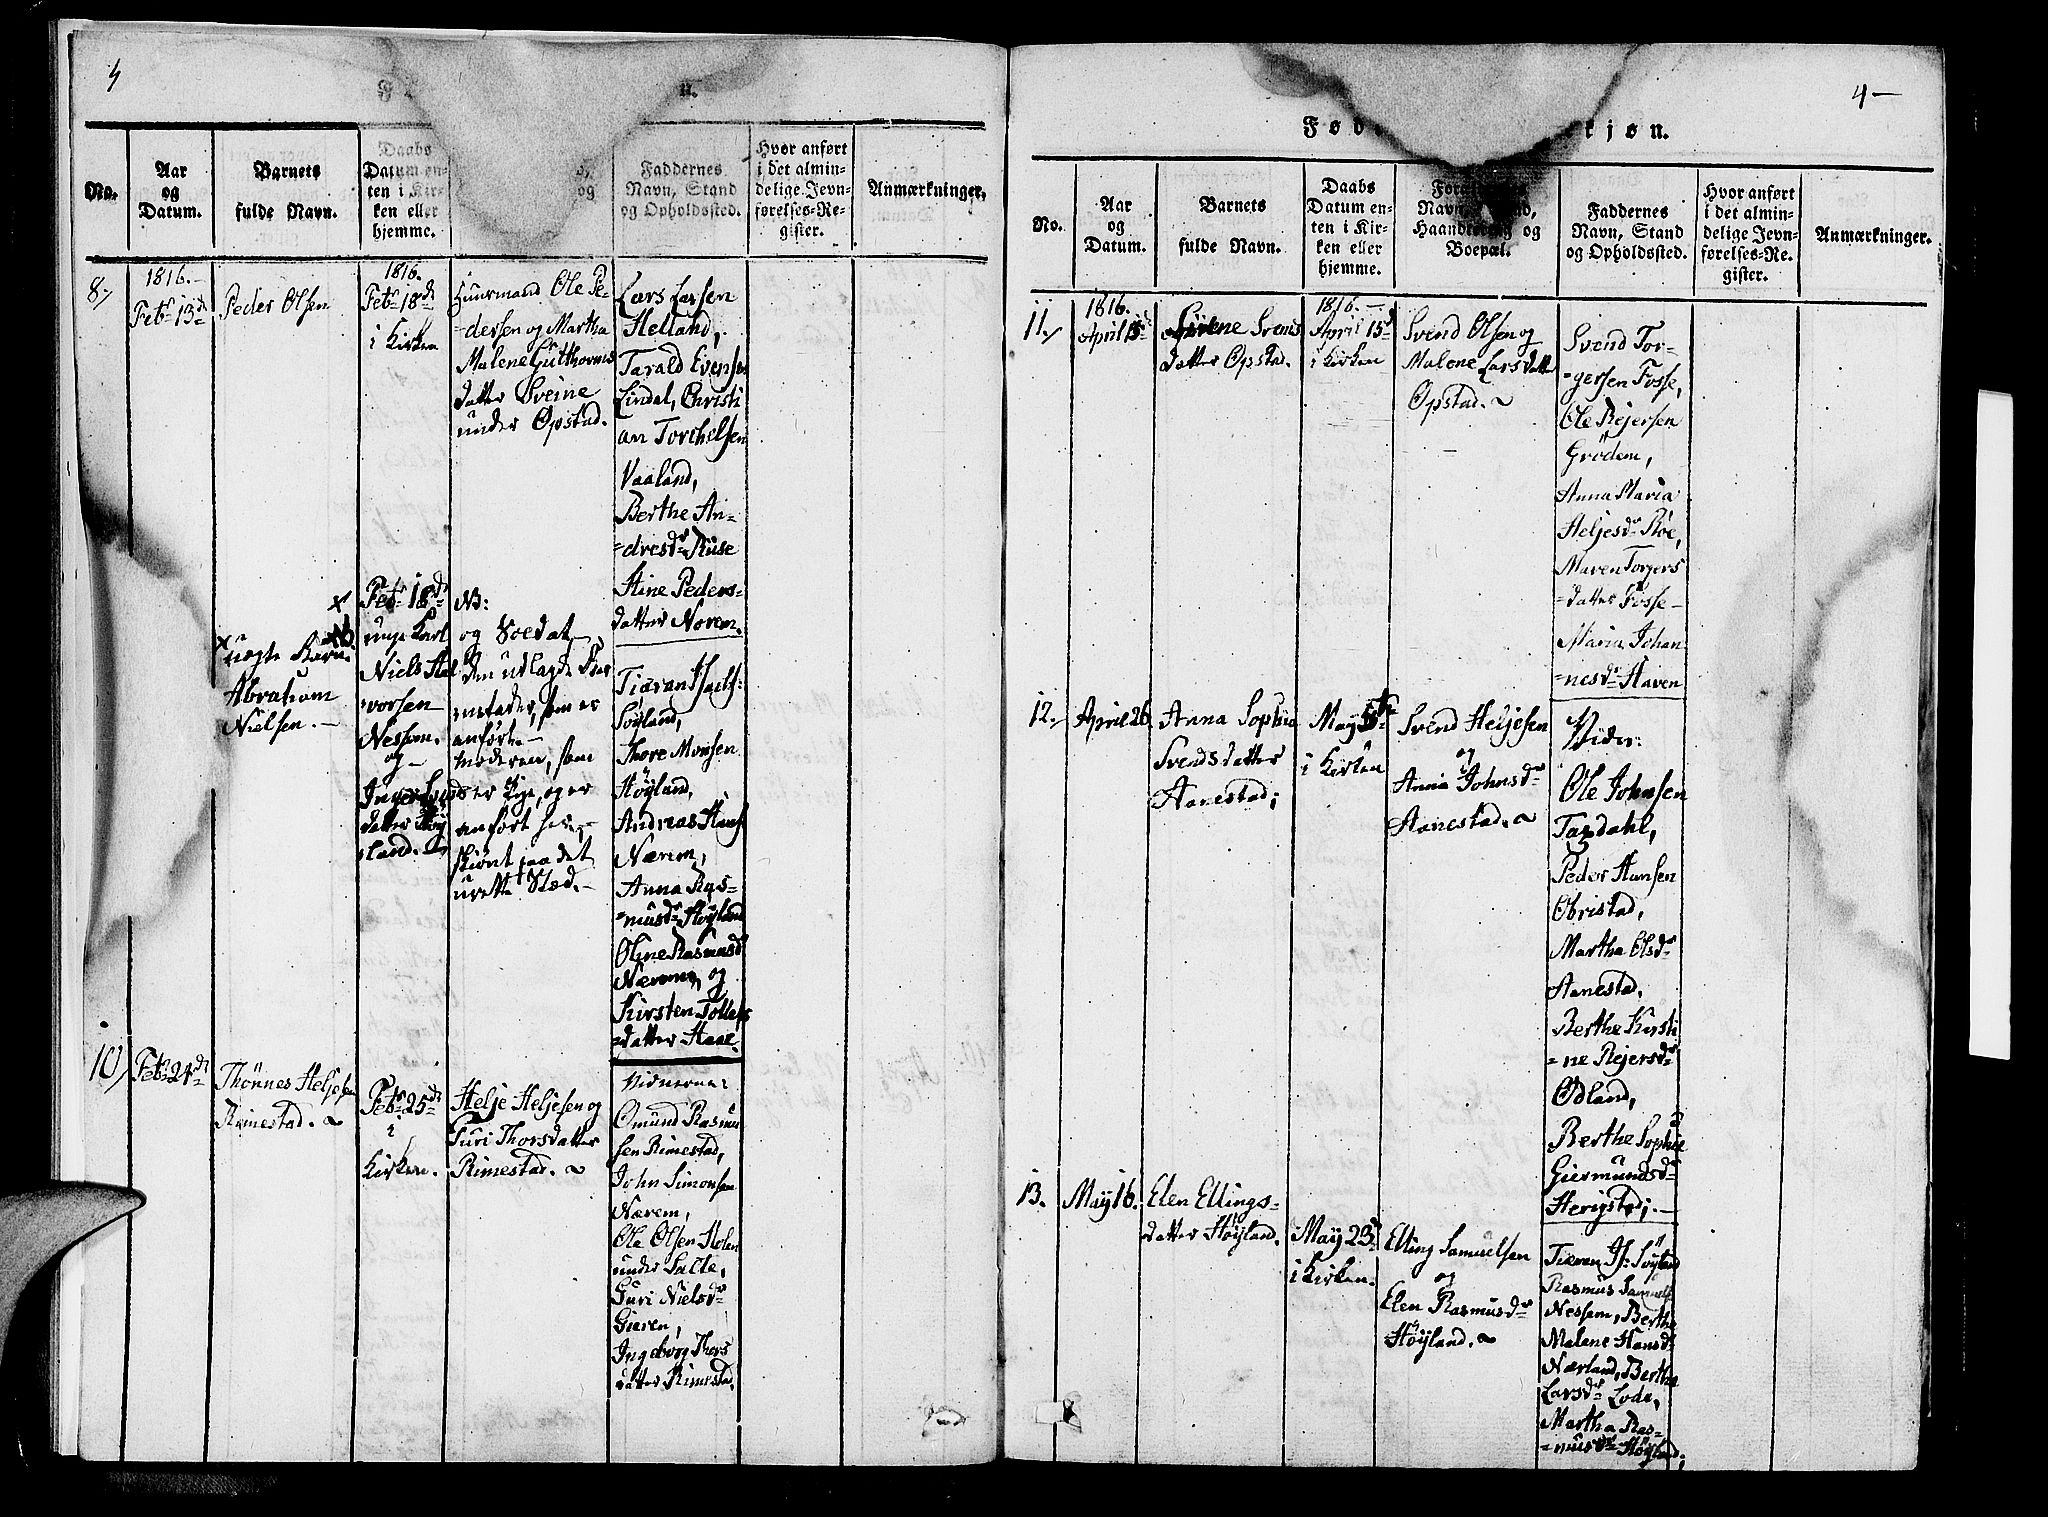 4
n.
No.
Aar
og
Datum.
Barnets
fulde Navn.
Daabs
Datum en-
ten i Kir-
ken eller
hjemme.
og
Faddernes
Navn, Stand
og Opholdssted.
Hvor anført
i det almin-
delige Jevn-
førelses-Re-
gister.
Anmærkninger.
8,
1816.—
Febr 13de
Peder Olsen
1816.
Febr 18de
i Kirken
Huusmand Ole Pe-
=dersen og Martha
Malene Gutthorms
datter Sveine
under Opstad.
Lars Larsen
Helland,
Tarald Evensen
Lindal, Christi
an Torchelsen
Vaaland,
Berthe An=
=dresdr Ruse
Stine Peders=
datter Norem.
uægte Barn.
Abraham
Nielsen.—
Febr 18de
unge Karl
Niels Hal
vorsen
Nessem.
og—
Inger
datter Høy
land.
NB:
og Soldat
den udlagde Bar
nefader, som er
anførte—
moderen, som
er Pige, og er
anført her,—
skiønt paa det
urette Sted.—
Tiæran Isachs:
Søyland,
Thore Monsen
Høyland,
Andreas Hans
Nærem,
Anna Ras=
=musdr Høyland
Oline Rasmusd
Nærem, og
Kirsten Tollefs
=datter Haae.
10,
Febr 24de
Thönnes Heljesen
Rimestad.
Febr 25de
i
Kirken.
Helje Heljesen og
Guri Thorsdatter
Rimestad.
Vidnerne:
Omund Rasmu
sen Rimestad,
John Simonsen
Nærem,
Ole Olsen Holen
under Salte,
Guri Nielsdr
Gieren,
Ingeborg Thors
datter Rimestad.
4—
Fød
kjøn.
No.
Aar
og
Datum.
Barnets
fulde Navn.
Daabs
Datum en-
ten i Kir-
ken eller
hjemme.
Forældrenes
Navn, Stand,
Haandtering og
Boepæl.
Faddernes
Navn, Stand
og Opholdssted.
Hvor anført
i det almin-
delige Jevn-
førelses-Re-
gister.
Anmærkninger.
11.
1816.
April 13de
Sirene Svends
datter Opstad.
1816.—
April 15de
i Kirken
Svend Olsen og
Malene Larsdatter
Opstad.
Svend Tor=
=gersen Fosse,
Ole Rejersen
Grödem,
Anna Maria
Heljesdr Roe,
Maren Torgers
=datter Fosse—
Maria Johan
=nesdr Haven
12.
April 26
Anna Sophia
Svends datter
Aanestad;
May 5te
i Kirken
Svend Heljesen
og
Anna Johnsdr
Aanestad.
Vidn:
Ole Johnsen
Taxdahl,
Peder Hansen
Obristad,
Martha Olsdr
Aanestad,
Berthe Kirsti
=ne Rejersdr
Ødland,
Berthe Sophie
Giermundsdr
Herigstad;—
13.
May 16.
Elen Ellings=
datter Höyland.
May 23
i Kirken.
Elling Samuelsen
og
Elen Rasmusdr
Höyland.
Tiæran Is: Söyland
Rasmus Samuels
Nessem, Berthe
Malene Hansdr
Nærland, Berthe
Larsdr Lode,
Martha Ras=
=musdr Höyland;